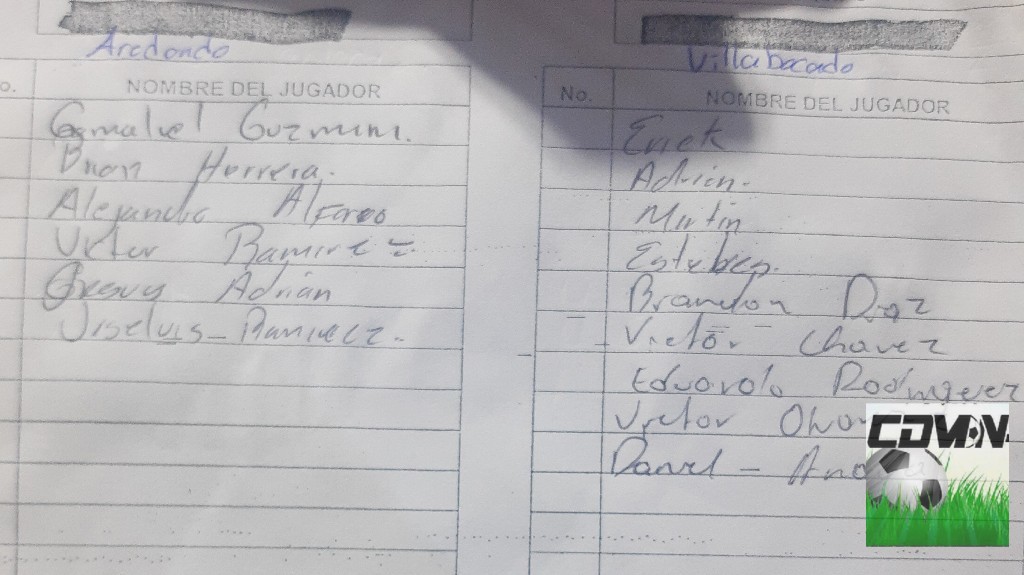 Aredondo
o. NOMBRE DEL JUGADOR
Gamaliel Guzman.
Brian Herrera.
Alejandro Alfaro
Victor Ramirez
Adrian
Joseluis - Ramirez.
Villabocado
No. NOMBRE DEL JUGADOR
Erick
Adrian.
Martin
Esteban.
Brandon Diaz
Victor Chavez
Eduardo Rodriguez
Victor
Daniel -
CDMXN